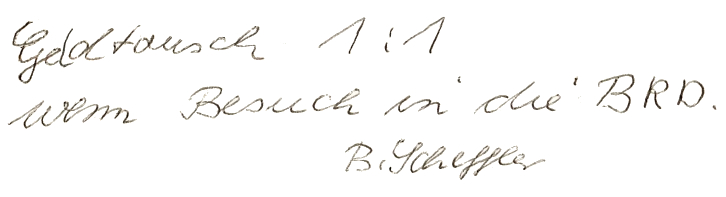 Geldtausch 1:1
wenn Besuch in die BRD.
B. Scheffler